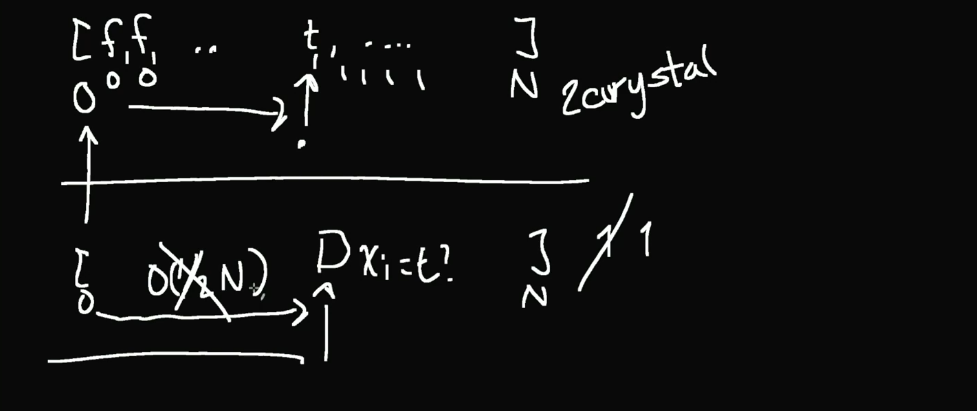 [f,f, .. t, .... ]
0 0 0 1 1 1 1 1 N 2crystal
[ O(1/2 N) D xi=t? ] 1 1
0 N